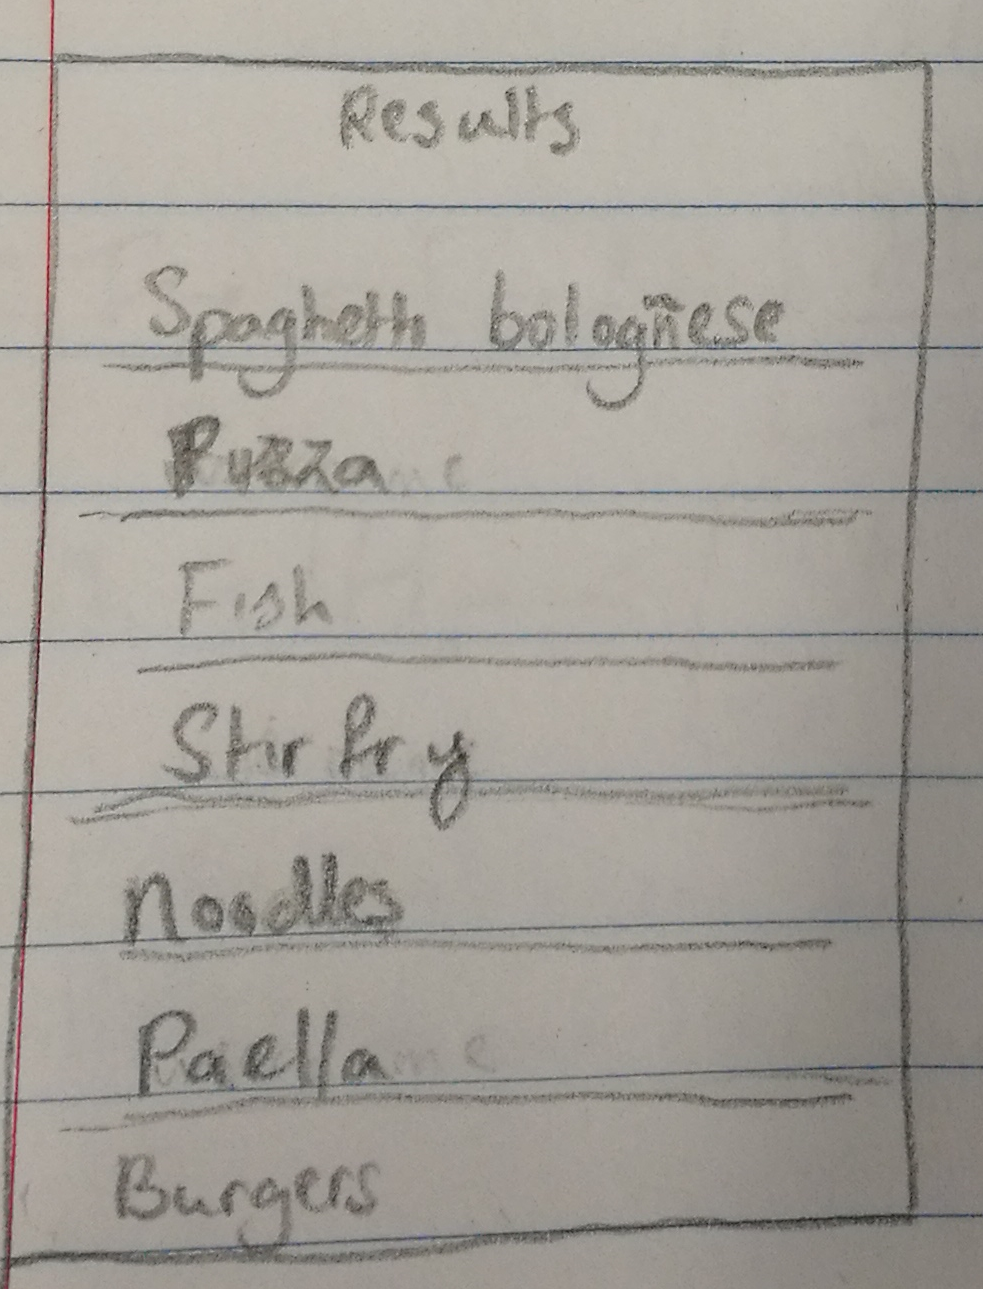 Results
Spaghetti bologñese
Puzza
Fish
Stir fry
Noodles
Paella
Burgers